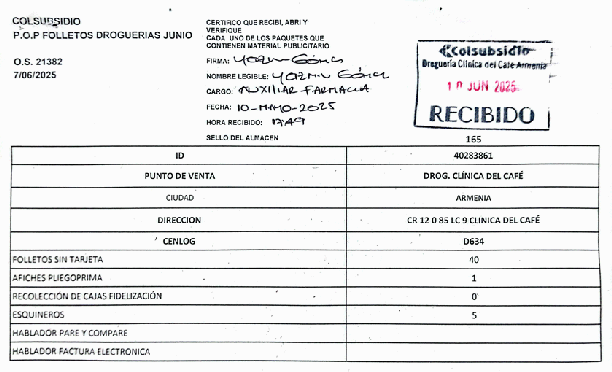 COLSUBSIDIO
P.O.P FOLLETOS DROGUERIAS JUNIO
O.S. 21382
7/06/2025
CERTIFICO QUE RECIBI, ABRI Y
VERIFIQUE
CADA UNO DE LOS PAQUETES QUE
CONTIENEN MATERIAL PUBLICITARIO
FIRMA:
NOMBRE LEGIBLE:
CARGO: AUXILIAR FARMACIA
FECHA: 10-MAYO-2025
HORA RECIBIDO:
SELLO DEL ALMACEN
Colsubsidio
Droguería Clínica del Café-Armenia
10 JUN 2025
RECIBIDO
165
ID 40283861
PUNTO DE VENTA DROG. CLÍNICA DEL CAFÉ
CIUDAD ARMENIA
DIRECCION CR 12 0 85 LC 9 CLINICA DEL CAFÉ
CENLOG D634
FOLLETOS SIN TARJETA 40
AFICHES PLIEGOPRIMA 1
RECOLECCIÓN DE CAJAS FIDELIZACIÓN 0
ESQUINEROS 5
HABLADOR PARE Y COMPARE
HABLADOR FACTURA ELECTRONICA